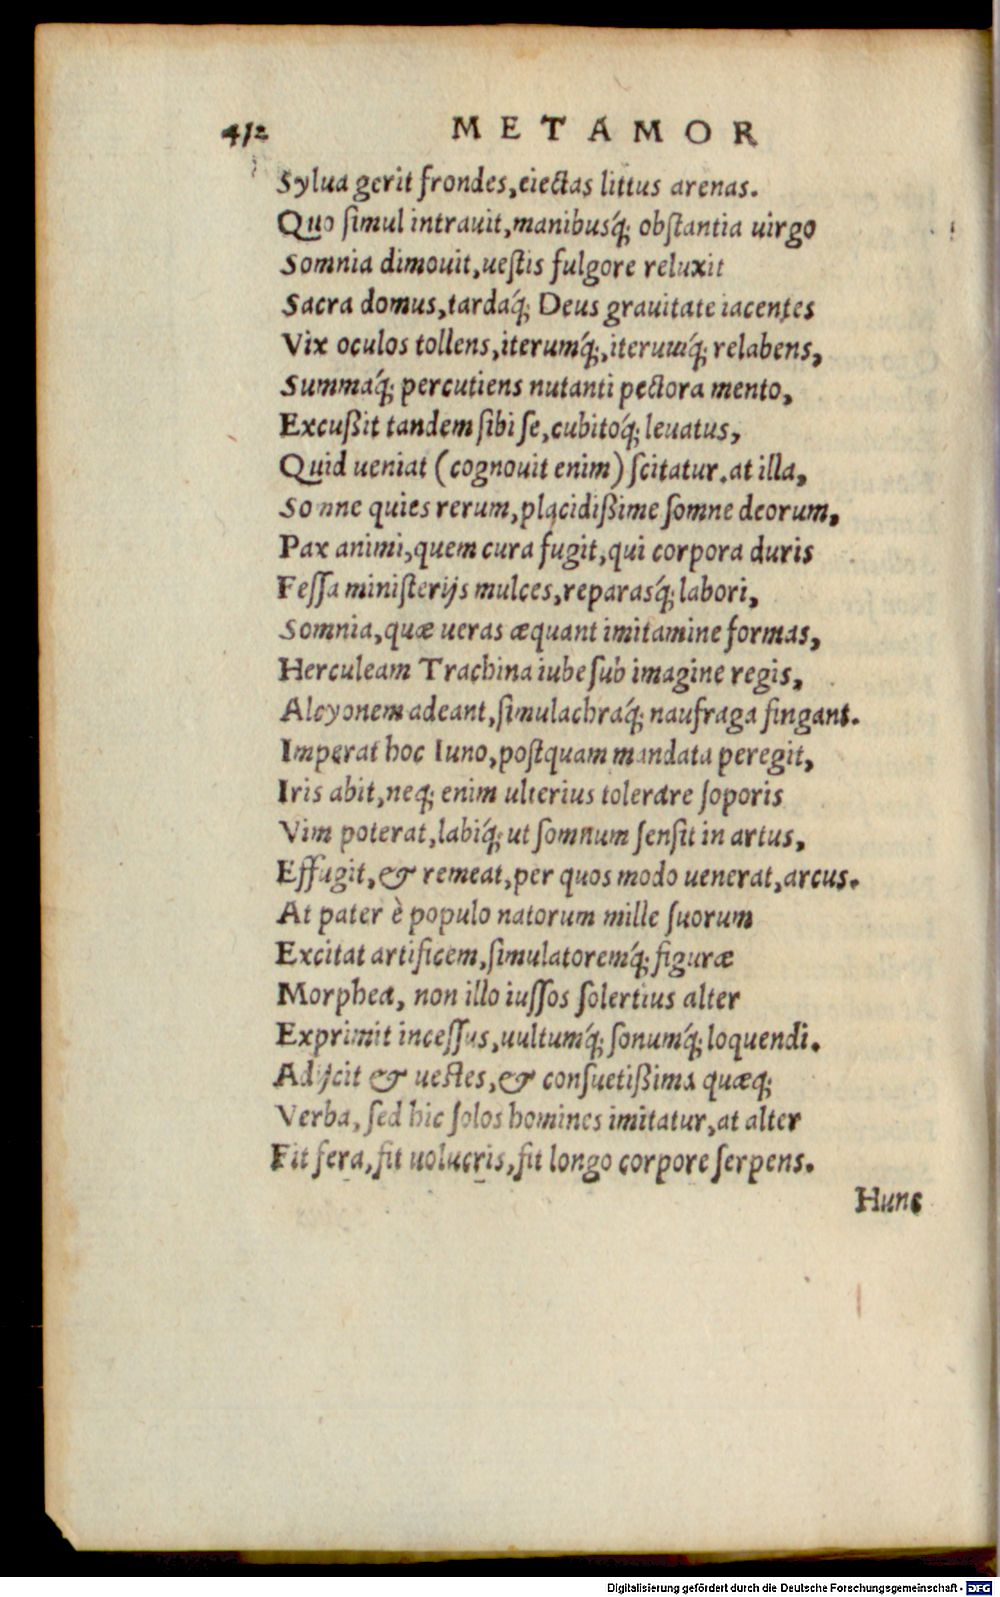 412 METAMOR
Sylua gerit frondes, eiectas littus arenas.
Quo ſimul intrauit, manibusq́; obſtantia uirgo
Somnia dimouit, ueſtis fulgore reluxit
Sacra domus, tardaq́; Deus grauitate iacentes
Vix oculos tollens, iterumq́;, iterumq́; relabens,
Summaq́; percutiens nutanti pectora mento,
Excußit tandem ſibi ſe, cubitoq́; leuatus,
Quid ueniat (cognouit enim) ſcitatur. at illa,
Somne quies rerum, placidißime ſomne deorum,
Pax animi, quem cura fugit, qui corpora duris
Feſſa miniſterijs mulces, reparasq́; labori,
Somnia, quæ ueras æquant imitamine formas,
Herculeam Trachina iube ſub imagine regis,
Alcyonem adeant, ſimulachraq́; naufraga fingant.
Imperat hoc Iuno, poſtquam mandata peregit,
Iris abit, neq; enim ulterius tolerare ſoporis
Vim poterat, labiq́; ut ſomnum ſenſit in artus,
Effugit, & remeat, per quos modo uenerat, arcus.
At pater è populo natorum mille ſuorum
Excitat artificem, ſimulatoremq́; figuræ
Morphea, non illo iuſſos ſolertius alter
Exprimit inceſſus, uultumq́; ſonumq́; loquendi.
Adijcit & ueſtes, & conſuetißima quæq;
Verba, ſed hic ſolos homines imitatur, at alter
Fit fera, fit uolucris, fit longo corpore ſerpens.
Hunc
Digitalisierung gefördert durch die Deutsche Forschungsgemeinschaft - DFG